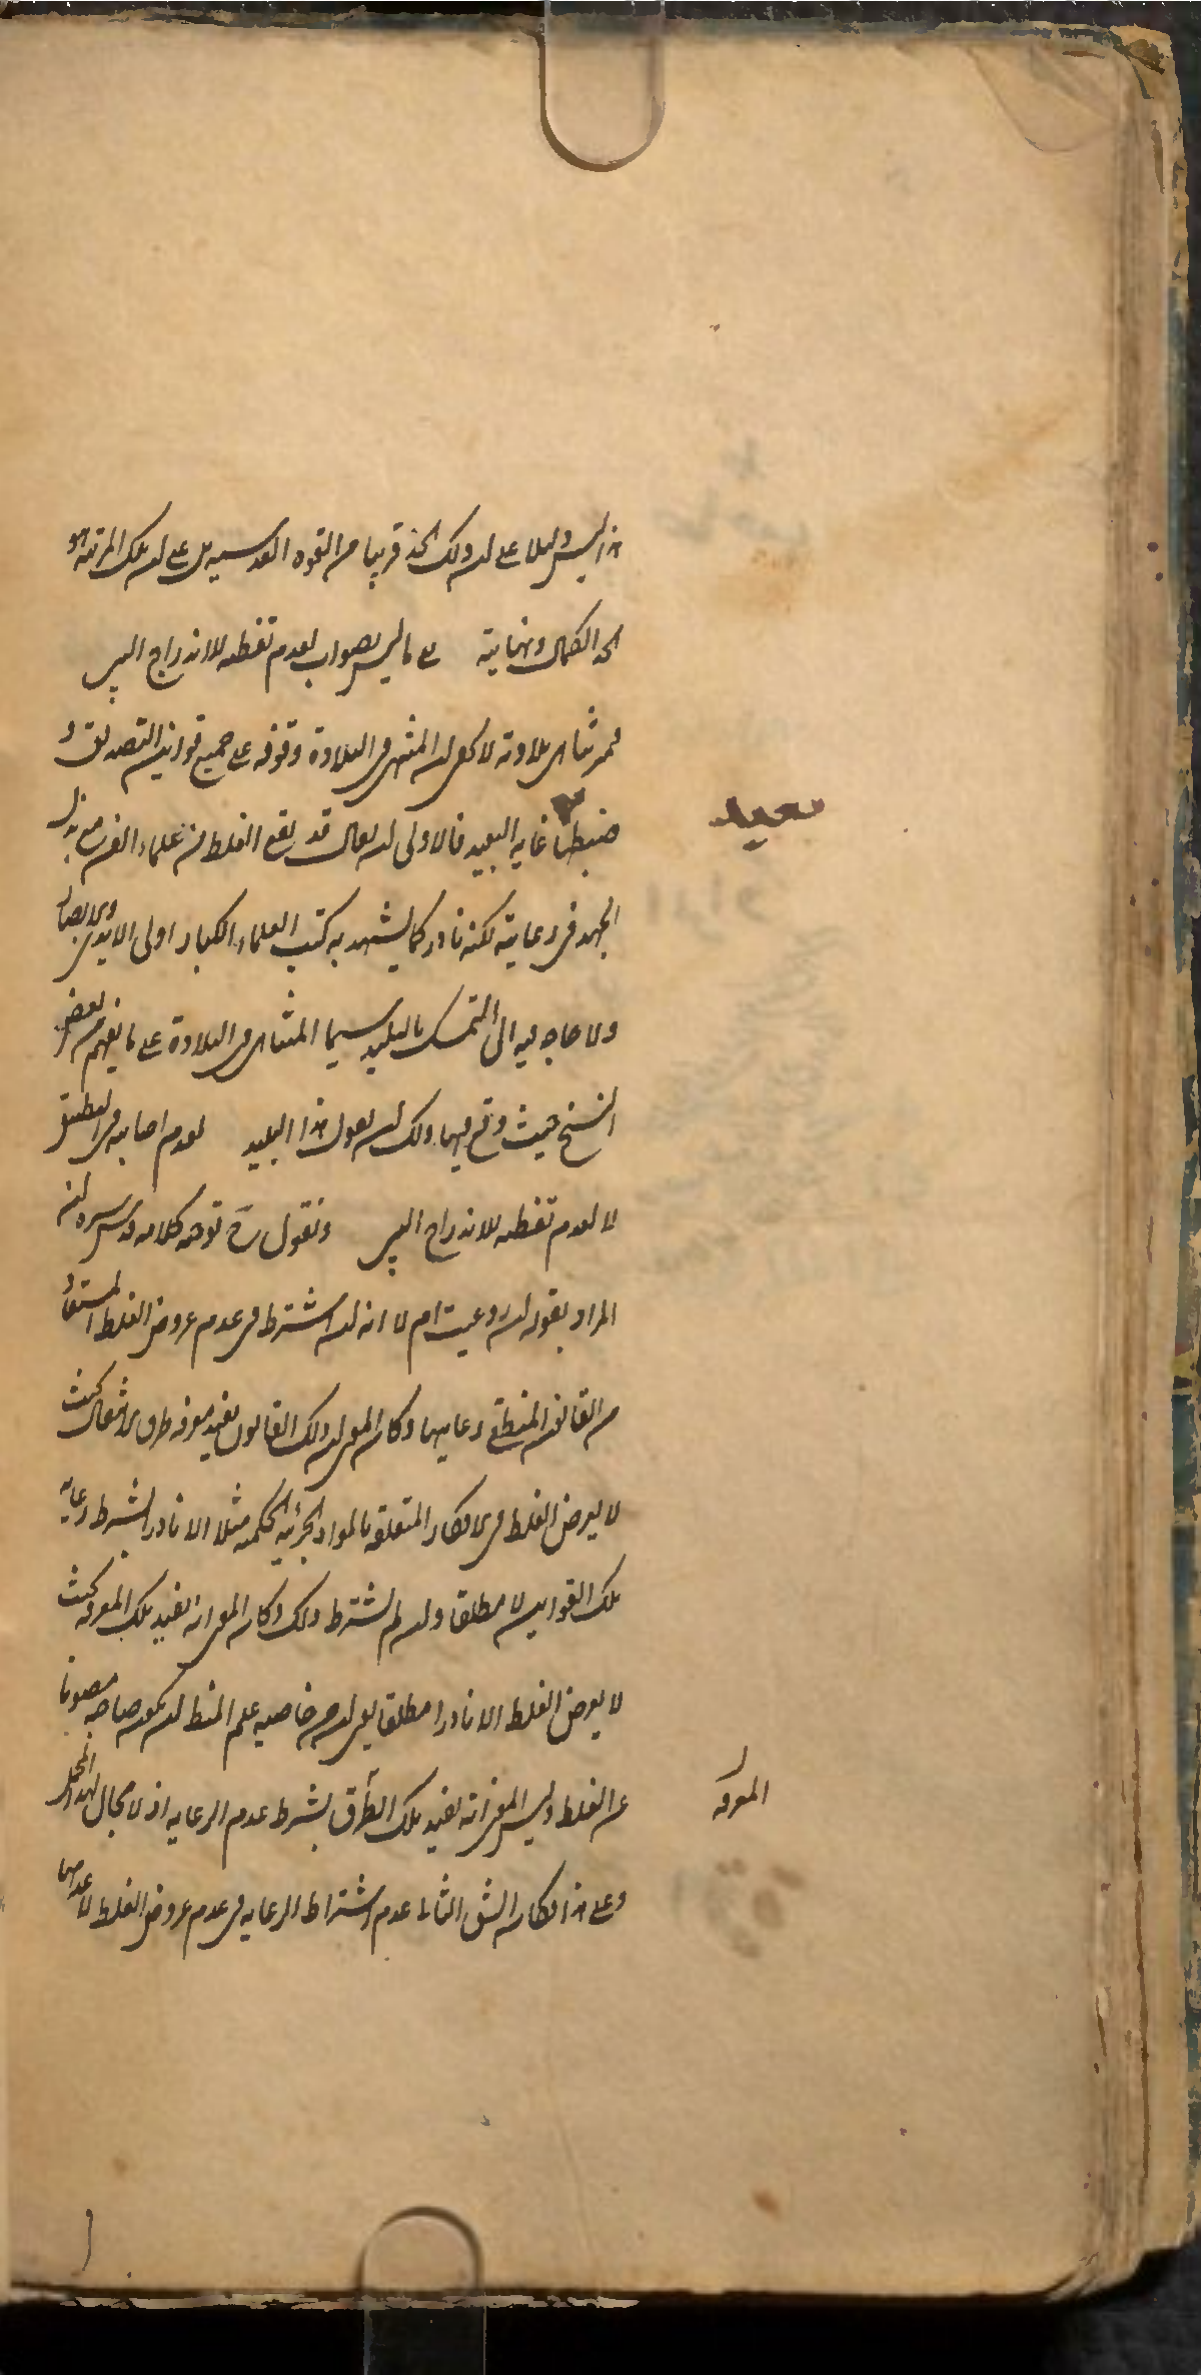 هذا ليس دليلا على ان ذلك الحد قريبا من القوة القدسية بل على ان تلك المرتبة هو
الحد الكمال ونهايته على ما ليس بصواب لعدم تفطنه للاندراج البين
فمن تناهى بلادته لا كعلى ان المنتهى في البلادة وقوفه على جميع قوانين التصديق و
ضبطها غاية البعيد فالاولى ان يقال قد يقع الغلط من علماء الفن مع بذل
الجهد في رعايته لكنه نادر كما يشهد به كتب العلماء الكبار اولى الايدي والابصار
ولا حاجة فيه الى التمسك بالبليد سيما المتناهى في البلادة على ما يفهم من بعض
النسخ حيث وقع فيها ولك ان يقول هذا البليد لعدم اصابته في التطبيق
لا لعدم تفطنه للاندراج البين ونقول في توجيه كلامه قدس سره ان
المراد بقوله ان روعيت ام لا انه ان اشترط في عدم عروض الغلط المستفاد
من القانون المنطقي رعايتها وكان المعنى ان ذلك القانون يفيد معرفة طرق الانتقال بحيث
لا يعرض الغلط في الافكار المتعلقة بالمواد الجزئية الحكمية مثلا الا نادرا بشرط رعاية
تلك القوانين لا مطلقا وان لم يشترط ذلك وكان المعنى انه يفيد تلك المعرفة بحيث
لا يعرض الغلط الا نادرا مطلقا يعنى ان من خاصية علم المنطق ان يكون صاحبه مصونا
عن الغلط وليس المعنى انه يفيد تلك الطرق بشرط عدم الرعاية اذ لا مجال لهذا المحل
وعلى هذا لكان الشق الثاني عدم اشتراط الرعاية في عدم عروض الغلط لا عدمها
بعيد
المعرفة